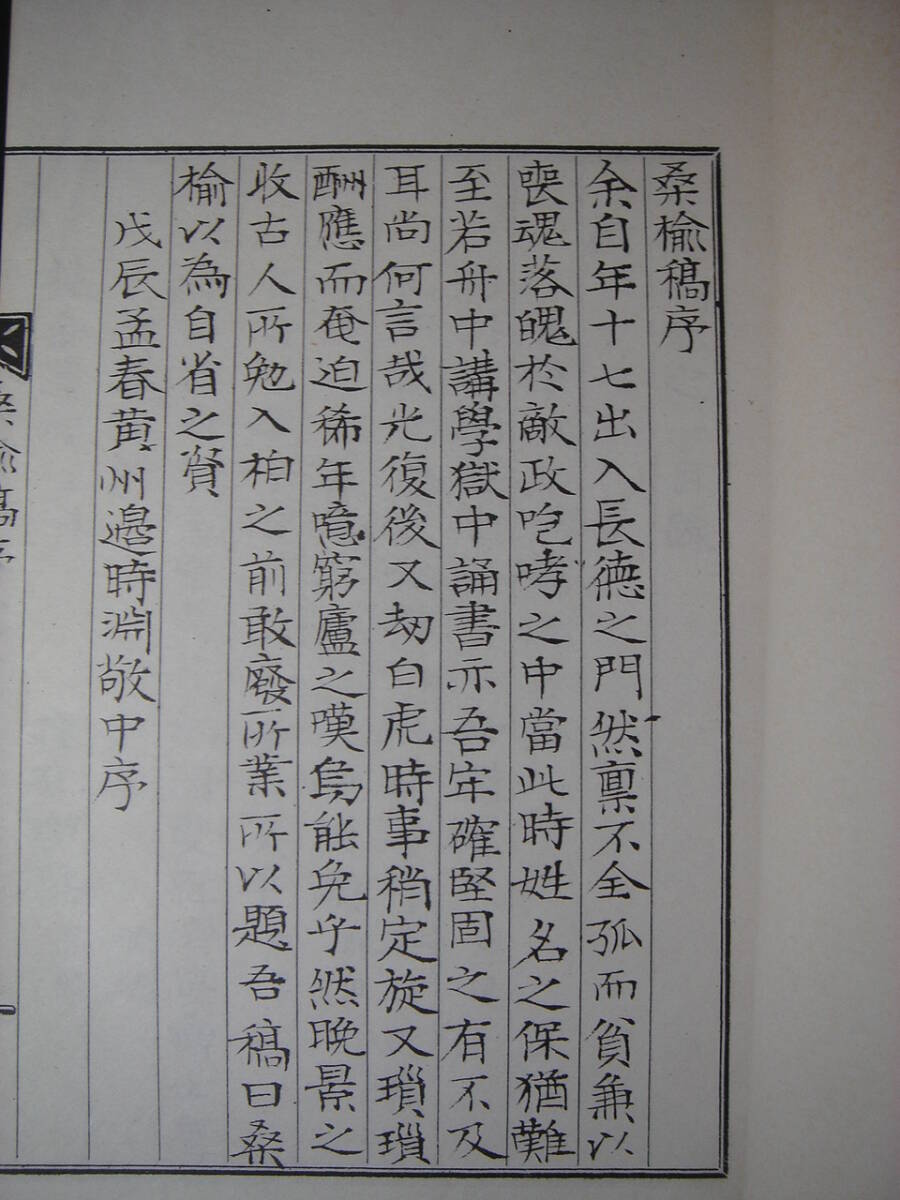 桑榆稿序
余自年十七出入長德之門然稟不全孤而貧兼以
喪魂落魄於敵政咆哮之中當此時姓名之保猶難
至若舟中講學獄中誦書亦吾牢確堅固之有不及
耳尚何言哉光復後又劫白虎時事稍定旋又瑣瑣
酬應而奄迫稀年噫窮廬之嘆烏能免乎然晩景之
收古人所勉入柏之前敢廢所業所以題吾稿曰桑
榆以為自省之資
戊辰孟春黄州邉時淵敬中序
桑榆稿序